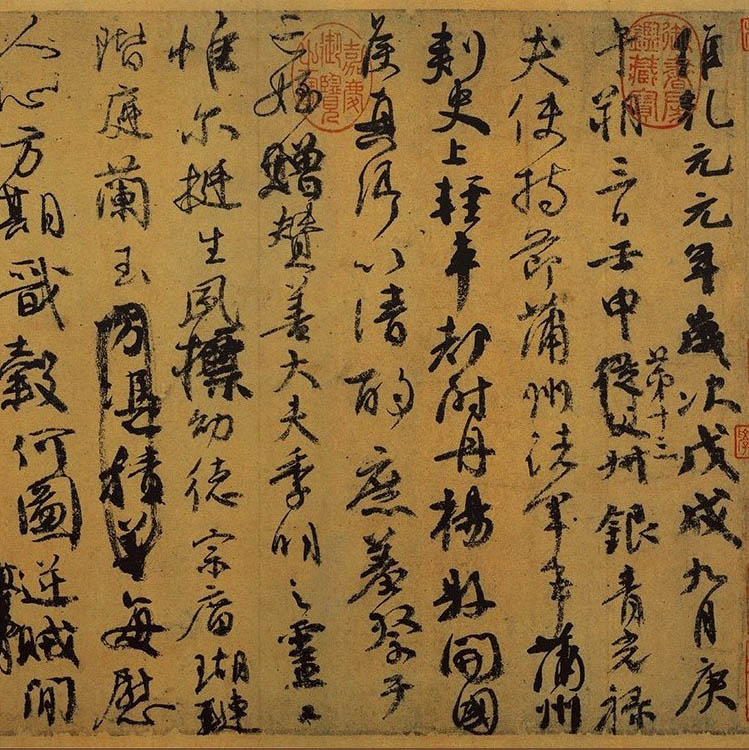 維乾元元年歲次戊戌九月庚
午朔三日壬申第十三從父銀青光祿
夫使持節蒲州諸軍事蒲州
刺史上輕車都尉丹楊縣開國
侯真卿以清酌庶羞祭于
亡姪贈贊善大夫季明之靈曰
惟爾挺生夙標幼德宗廟瑚璉
階庭蘭玉方憑積善每慰
人心方期戩穀何圖逆賊閒
御書房鑑藏寶
嘉慶御覽之寶